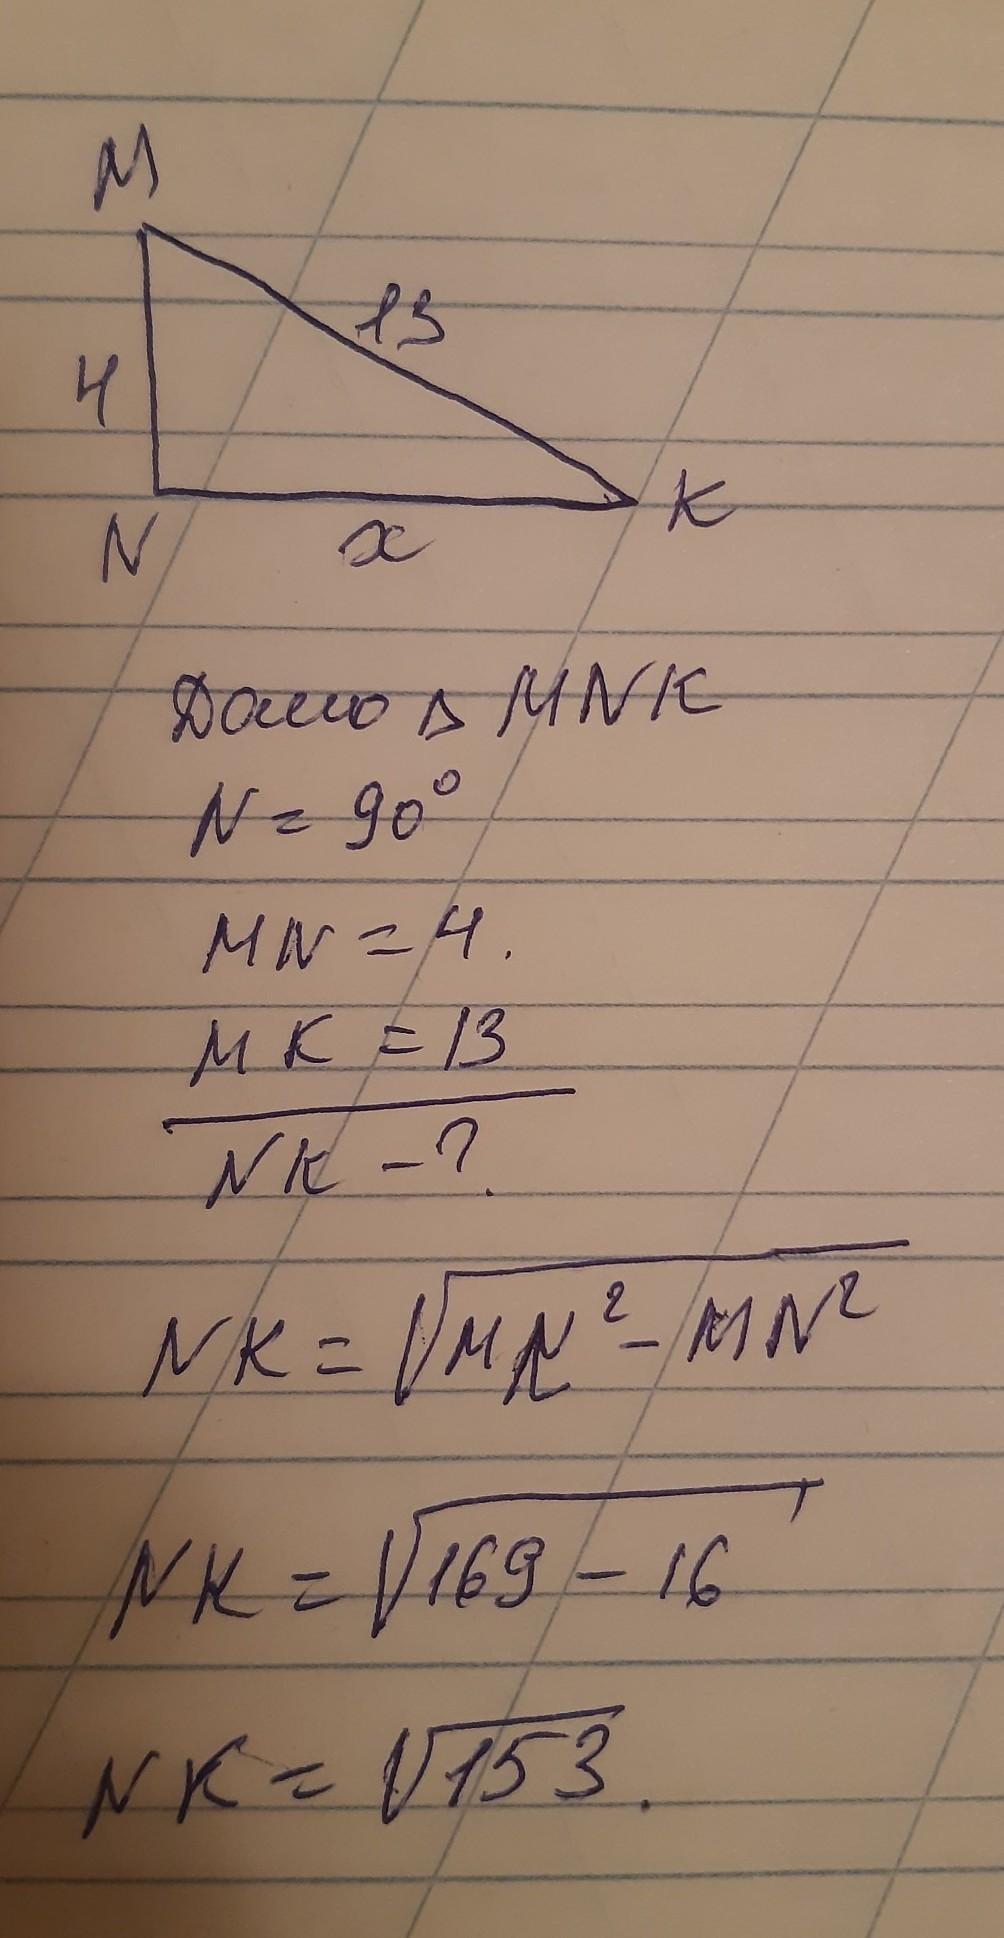 M
13
4
N
x
K
Дано Δ MNK
N = 90°
MN = 4.
MK = 13
NK - ?
NK = √MK² - MN²
NK = √169 - 16
NK = √153.